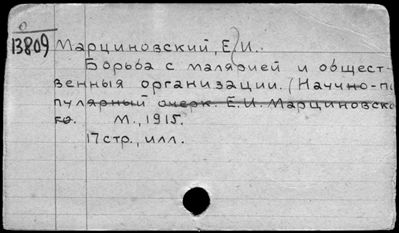 13809 Марциновский, Е.И.
Борьба с малярией и общест-
венныя организации. (Научно-по
пулярный очерк. Е.И. Марциновско-
го. М., 1915.
17 стр., илл.